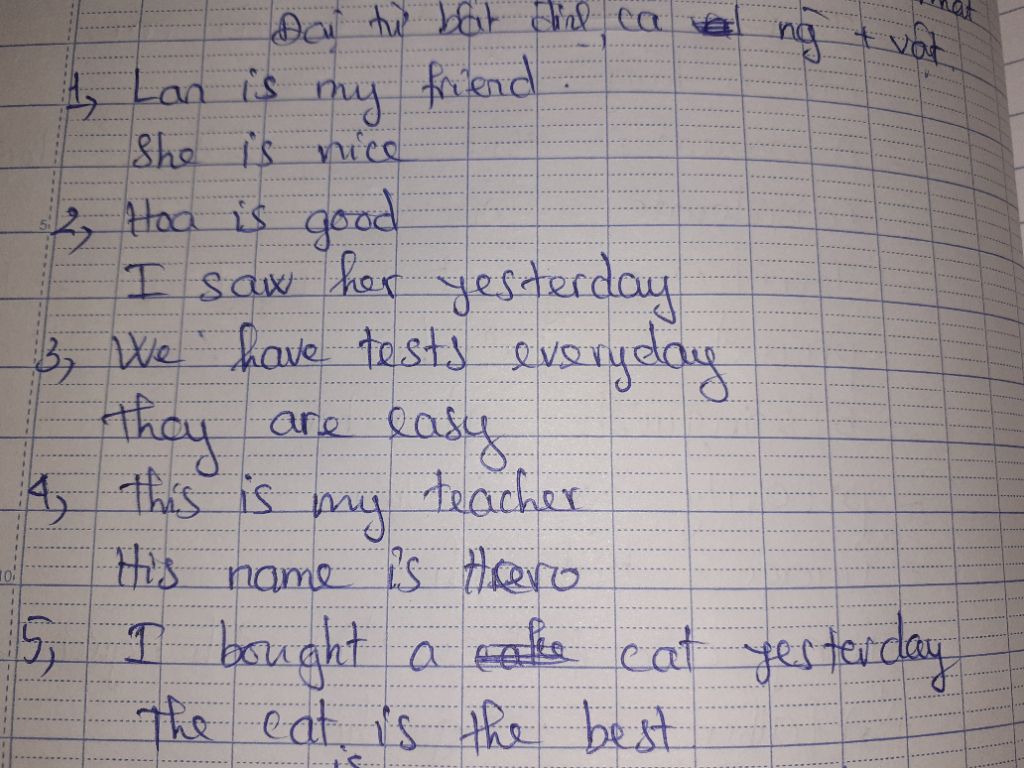 Đại từ bất định, cả ng + vật
1, Lan is my friend.
She is nice
2, Hoa is good
I saw her yesterday
3, We have tests everyday
They are easy
4, This is my teacher
His name is
5, I bought a cat yesterday
The cat is the best
is